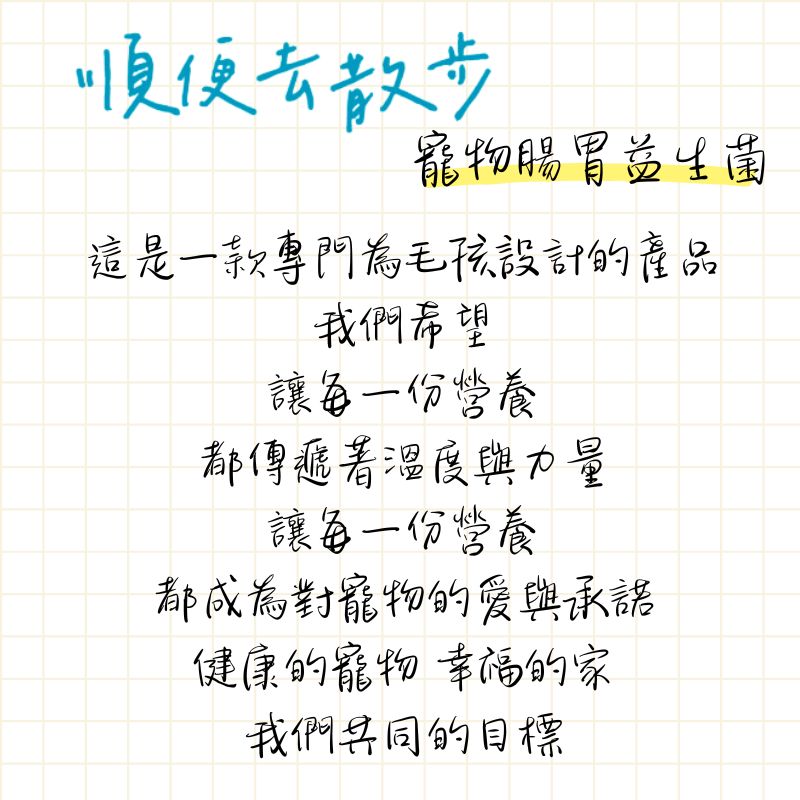 順便去散步
寵物腸胃益生菌
這是一款專門為毛孩設計的產品
我們希望
讓每一份營養
都傳遞著溫度與力量
讓每一份營養
都成為對寵物的愛與承諾
健康的寵物 幸福的家
我們共同的目標